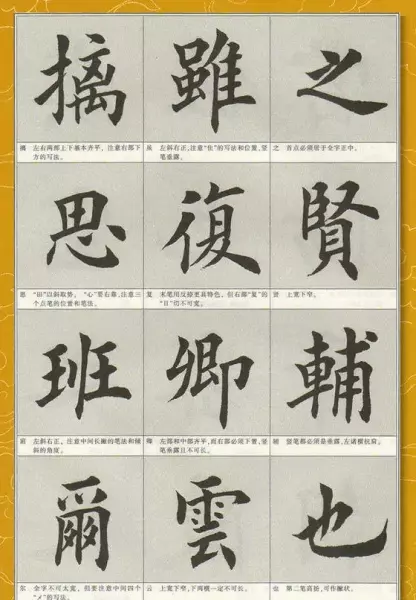 摛 雖 之
摛 左右两部上下基本齐平，注意右部下方的写法。
虽 左斜右正，注意"隹"的写法和位置，竖笔垂露。
之 首点必须居于全字正中。
思 復 賢
思 "田"以斜取势，"心"要右靠，注意三个点笔的位置和笔法。
复 末笔用反捺更具特色，但右部"复"的"日"切不可宽。
贤 上宽下窄。
班 卿 輔
班 左斜右正，注意中间长撇的笔法和倾斜的角度。
卿 左部和中部齐平，而右部必须下置，竖笔垂露且不可长。
辅 竖笔都必须是垂露，左诸横抗肩。
爾 雲 也
尔 全字不可太宽，但要注意中间四个"乂"的写法。
云 上宽下窄，下两横一定不可长。
也 第二笔高扬，可作撇状。